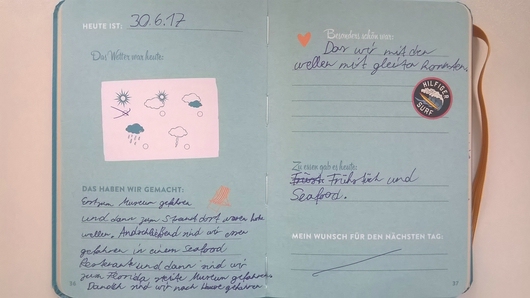 HEUTE IST: 30.6.17
Das Wetter war heute:
DAS HABEN WIR GEMACHT:
Erst zum Museum gefahren
und dann zum Strand dort waren hohe
wellen. Andschließend sind wir essen
gefahren in einem Seafood
Restorant und dann sind wir
zum Florida gefahren.
Danach sind wir nach Hause gefahren
56
Besonders schön war:
Das wir mit den
wellen mit gleiten konnten.
HILFIGER
SURF
Zu essen gab es heute:
Früstü Frühstück und
Seafood.
MEIN WUNSCH FÜR DEN NÄCHSTEN TAG:
57